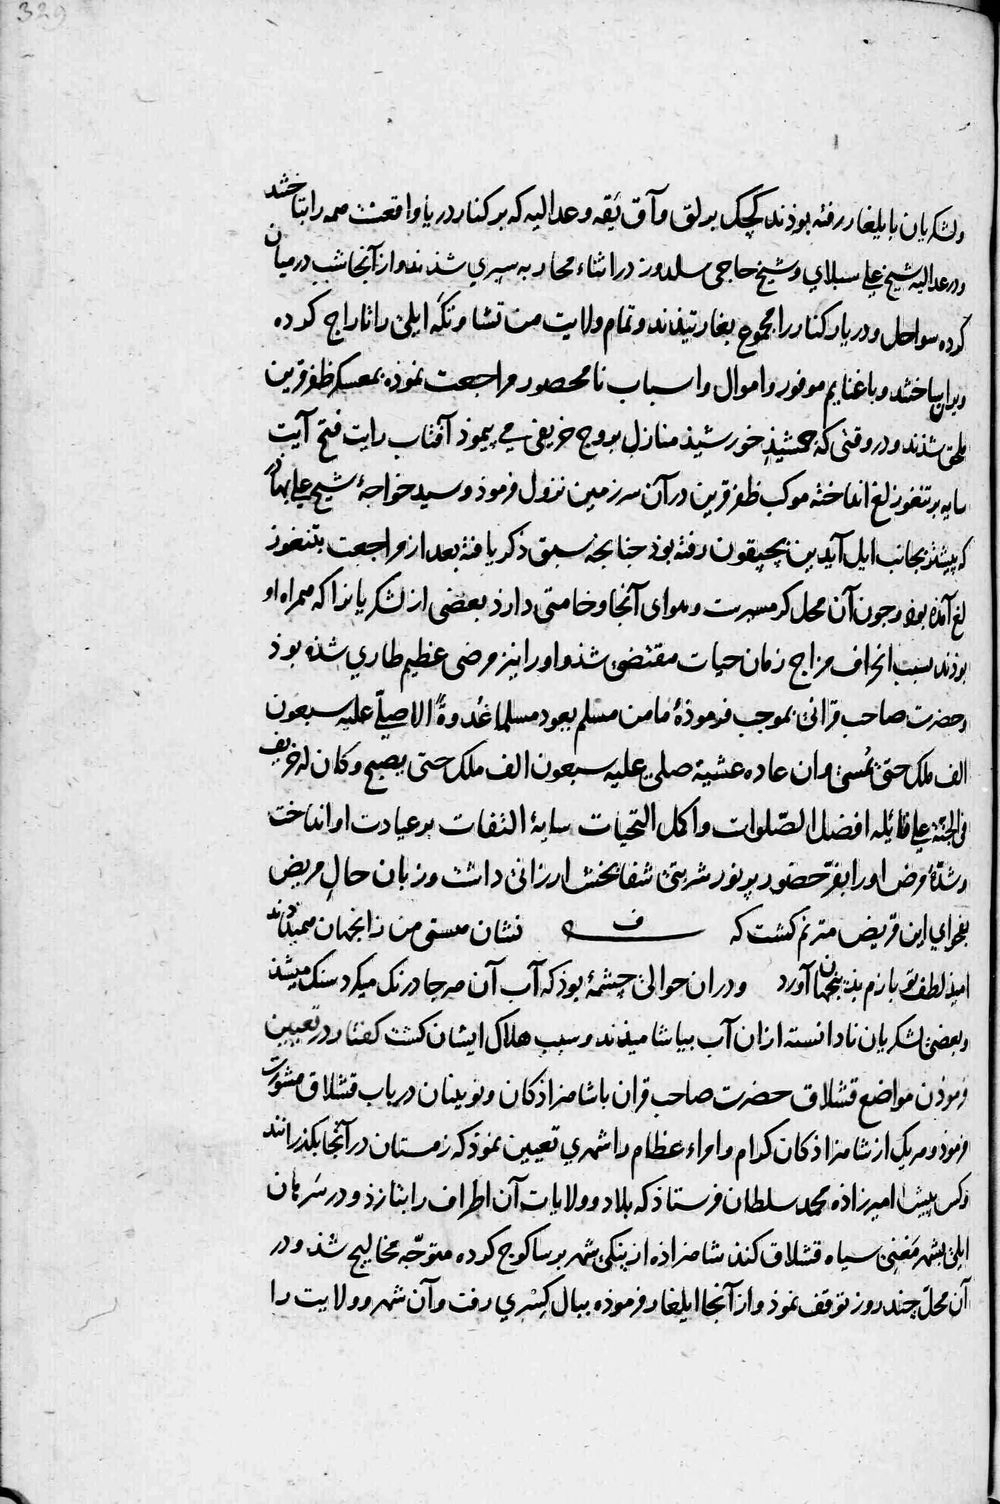 329
ولشکریان بایلغار رفته بوذند کچک برلق و آق یقه و عدالیه که بر کنار دریا واقعنت همه را بتاختند
و در عدالیه شیخ علی سبلای و شیخ حاجی سلدوز در اثناء محاربه سپری شذند و از آنجا شب در میان
کرده سواحل و دریا کنار را مجموع بغارتیذند و تمام ولایت منتشا و تکه ایلی را تاراج کرده
ویران ساختند و با غنایم موفور و اموال و اسباب نامحصور مراجعت نموذه بمعسکر ظفرقرین
ملحق شذند و در وقتی که جمشیذ خورشیذ منازل بروج خریفی می پیموذ آفتاب رایت فتح آیت
سایه بر تنغوزلغ انداخته موکب ظفرقرین در آن سرزمین نزول فرموذ و سید خواجۀ شیخ علی بهادر
که پیشتر بجانب ایل آیدین بچپقون رفته بوذ جنانجه سبق ذکر یافته بعد از مراجعت بتنغوز
لغ آمذه بوذ و جون آن محل کرمسیرست و هوای آنجا وخامتی دارذ بعضی از لشکریانرا که همراه او
بوذند بسبب انحراف مزاج زمان حیات مقتضی شذ و او را نیز مرضی عظیم طاری شذه بوذ
و حضرت صاحب قرانی بموجب فرموذۀ ما من مسلم یعود مسلما غُدوةً الا صلّی علیه سبعون
الف ملک حتی یُمسی و ان عاده عشیة صلی علیه سبعون الف ملک حتی یصبح و کان له خریف
فی الجنّة علی قائله افضل الصّلوات و اکمل التحیات سایۀ التفات بر عیادت او انداخت
و شدّۀ مرض او را بفرّ حضور پر نور شربتی شفابخش ارزانی داشت و زبان حال مریض
بفحوای این قریض مترنم کشت که ف نشان هستی من زانجهان همیدادند
امیذ لطف تو بازم بذینجهان آورد و در ان حوالی چشمۀ بوذ که آب آن هر جا درنک میکرد سنک میشذ
و بعضی لشکریان نادانسته از ان آب بیاشامیذند و سبب هلاک ایشان کشت کفتار در تعیین
فرموذن مواضع قشلاق حضرت صاحب قران با شاهزاذکان و نوینان در باب قشلاق مشورت
فرموذ و هر یک از شاهزاذکان کرام و امراء عظام را شهری تعیین نموذ که زمستان در آنجا بکذرانند
و کس پیش امیرزاذه محمد سلطان فرستاذ که بلاد و ولایات آن اطراف را بتازذ و در سرخان
ایلی بشهر مغنی سیاه قشلاق کنذ شاهزاذه از ینکی شهر برسا کوج کرده متوجّه مخالیج شذ و در
آن محلّ چند روز توقف نموذ و از آنجا ایلغار فرموذه ببال کسری رفت و آن شهر و ولایت را